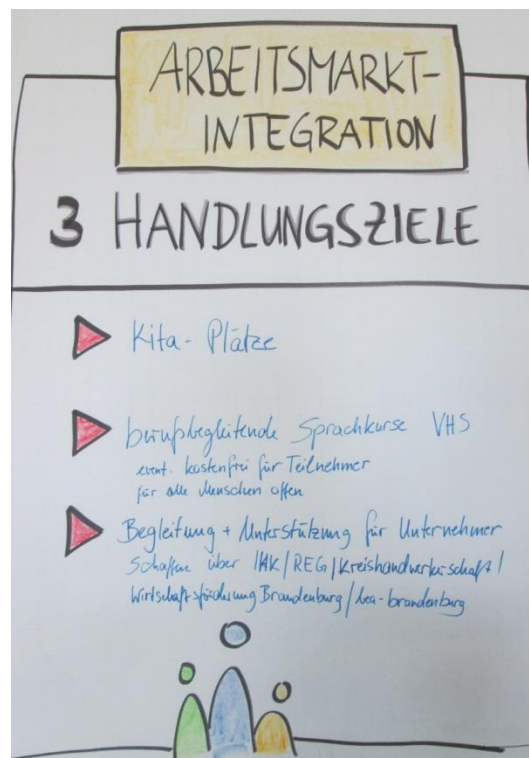 ARBEITSMARKT-
INTEGRATION
3 HANDLUNGSZIELE
Kita - Plätze
berufsbegleitende Sprachkurse VHS
event. kostenfrei für Teilnehmer
für alle Menschen offen
Begleitung + Unterstützung für Unternehmer
Schaffen über IHK/REG/Kreishandwerkerschaft/
Wirtschaftsförderung Brandenburg/bea-brandenburg